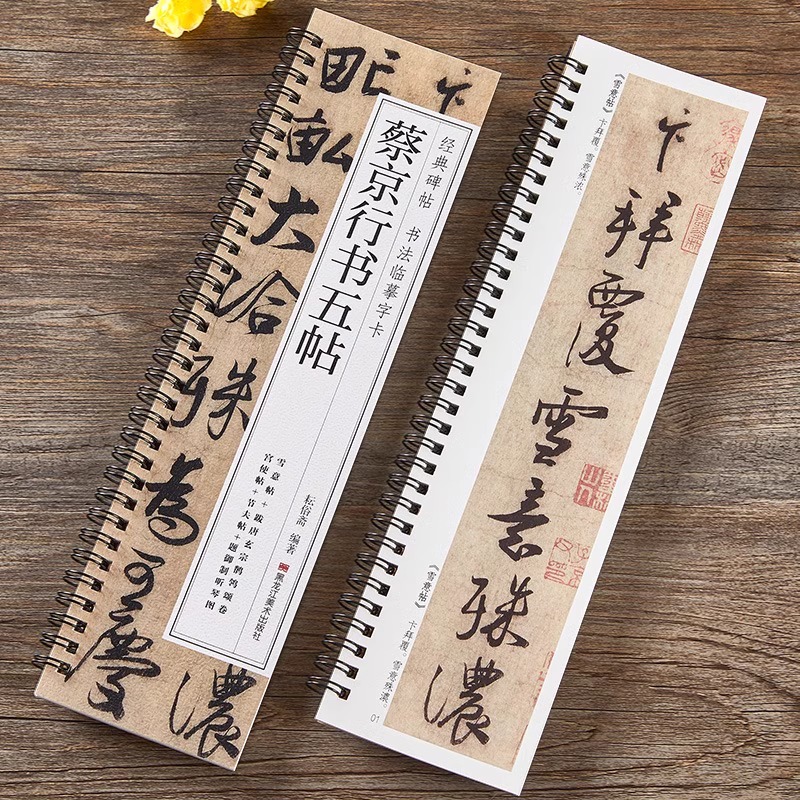 卞
濃
甿畝大洽殊為至慶
经典碑帖 书法临摹字卡
蔡京行书五帖
雪意帖+跋唐玄宗鹡鸰颂卷
宫使帖+节夫帖+题御制听琴图
耘俗斋 编著
黑龙江美术出版社
《雪意帖》 卞拜覆。雪意殊浓。
卞拜覆雪意殊濃
《雪意帖》 卞拜覆。雪意殊濃。
01